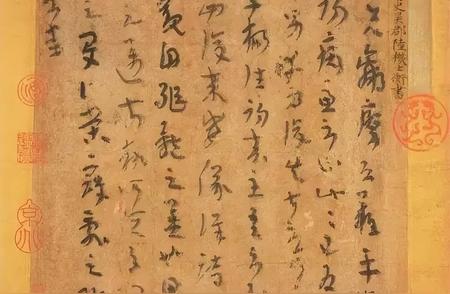 史吳郡陸機士衡書
先羸瘵恐難平
病慮不止此此已為
男幸為復失前憂
子楊往初來主吾不
西復來威儀詳
觀自軀體之美也思
之邁前執所恒有
之夏伯榮寇亂之際
不悉